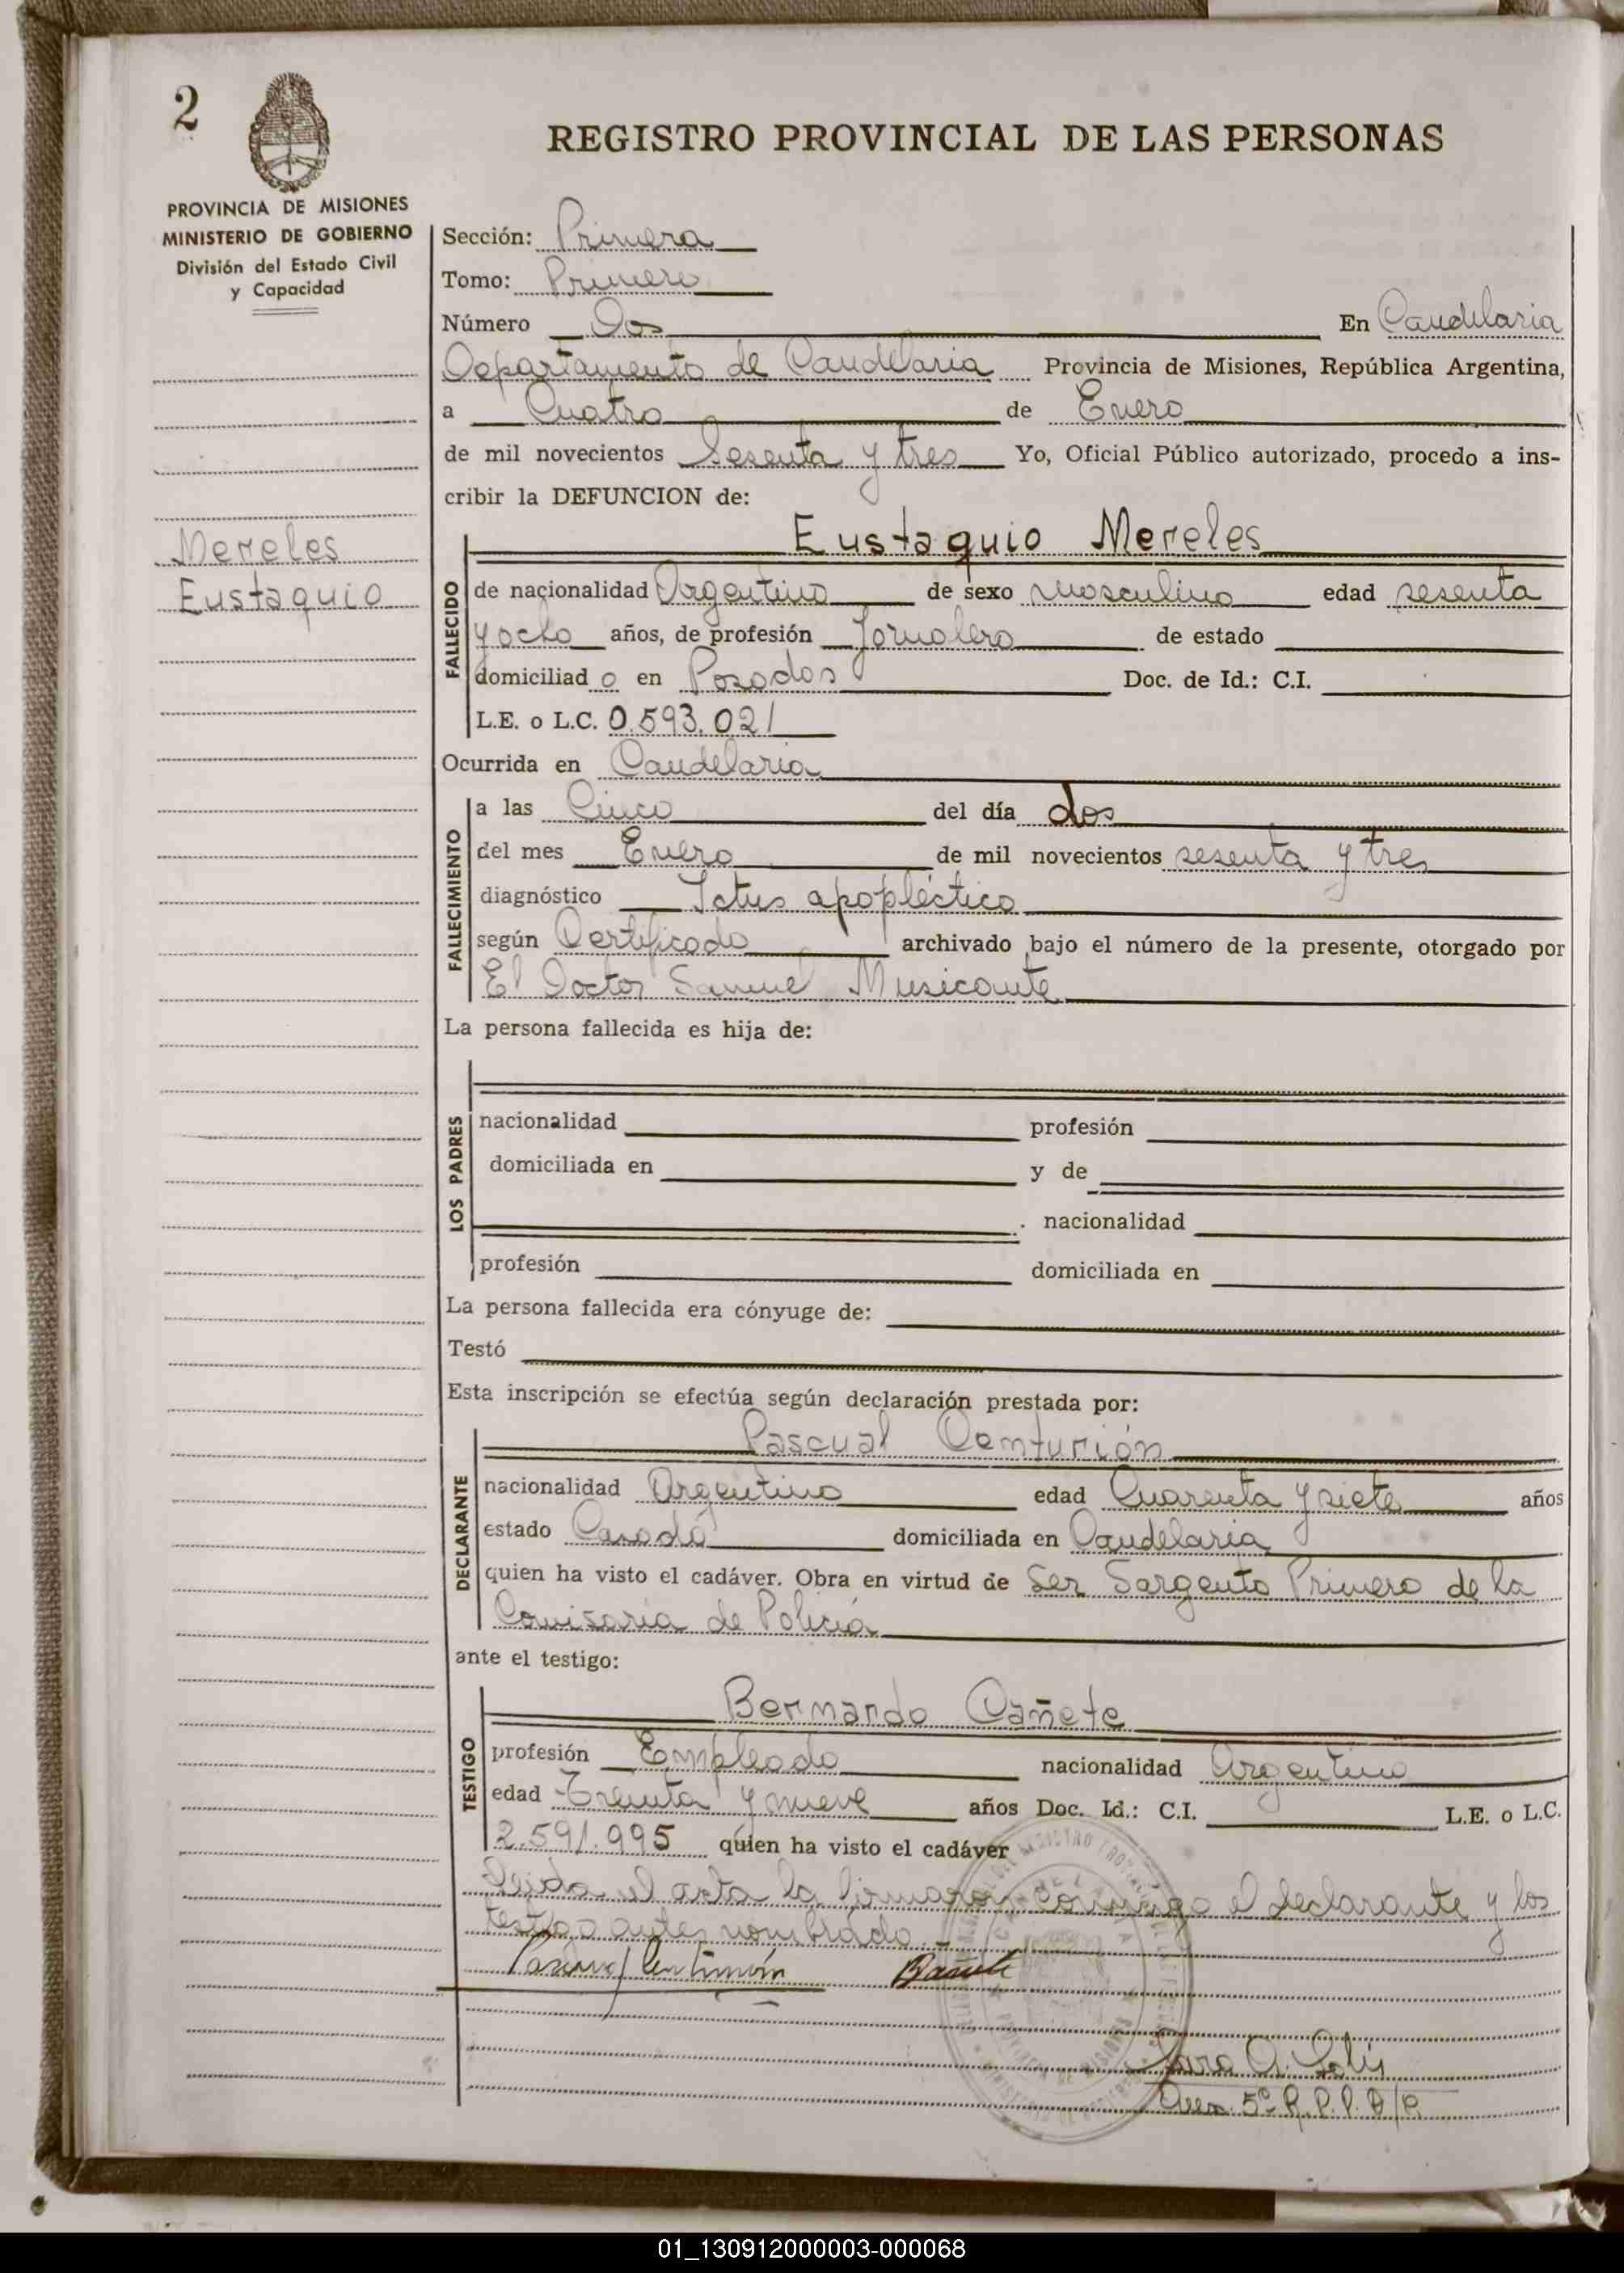 2
REGISTRO PROVINCIAL DE LAS PERSONAS
PROVINCIA DE MISIONES
MINISTERIO DE GOBIERNO
División del Estado Civil
y Capacidad
Sección: Primera
Tomo: Primero
Número Dos En Candelaria
Departamento de Candelaria Provincia de Misiones, República Argentina,
a Cuatro de Enero
de mil novecientos Sesenta y tres Yo, Oficial Público autorizado, procedo a ins-
cribir la DEFUNCION de:
Mereles
Eustaquio
FALLECIDO
Eustaquio Mereles
de nacionalidad Argentino de sexo masculino edad sesenta
y ocho años, de profesión Jornalero de estado
domiciliad o en Posadas Doc. de Id.: C.I.
L.E. o L.C. 0.593.021
Ocurrida en Candelaria
FALLECIMIENTO
a las Cinco del día dos
del mes Enero de mil novecientos sesenta y tres
diagnóstico Ictus apopléctico
según Certificado archivado bajo el número de la presente, otorgado por
El Doctor Samuel Musicante
La persona fallecida es hija de:
LOS PADRES
nacionalidad profesión
domiciliada en y de
nacionalidad
profesión domiciliada en
La persona fallecida era cónyuge de:
Testó
Esta inscripción se efectúa según declaración prestada por:
DECLARANTE
Pascual Centurión
nacionalidad Argentino edad Cuarenta y siete años
estado Casado domiciliada en Candelaria
quien ha visto el cadáver. Obra en virtud de Ser Sargento Primero de la
Comisaría de Policía
ante el testigo:
TESTIGO
Bernardo Cañete
profesión Empleado nacionalidad Argentino
edad Treinta y nueve años Doc. Id.: C.I. L.E. o L.C.
2.591.995 quien ha visto el cadáver
Leida el acta la firmaron conmigo el declarante y los
testigo antes nombrado.-
Pascual Centurión
Sara A. Solis
01_130912000003-000068